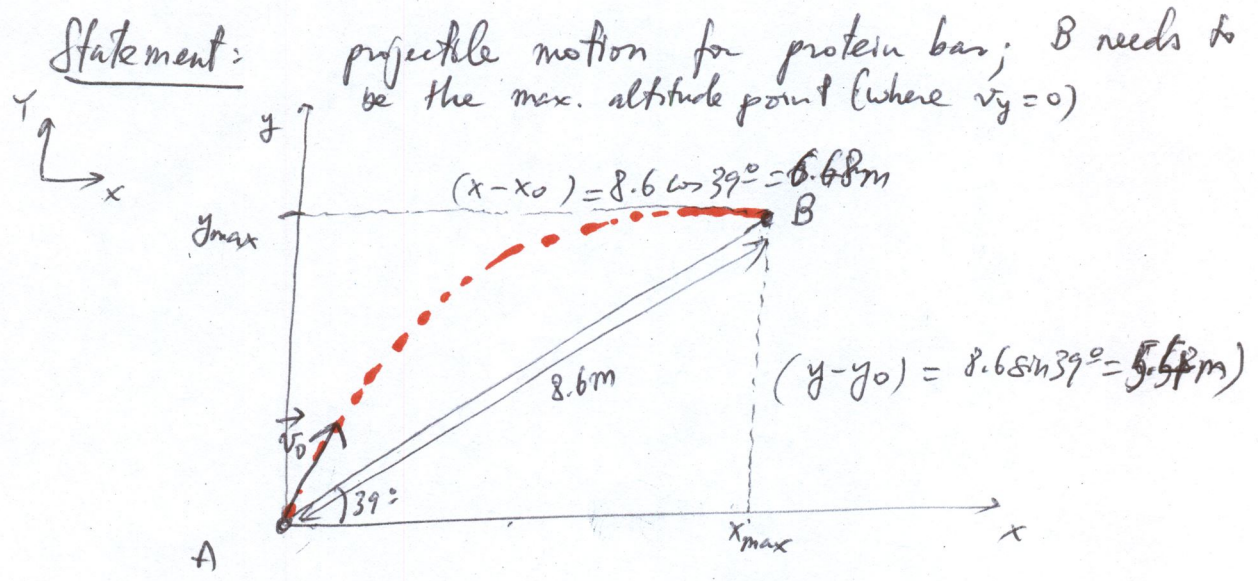 Statement: projectile motion for protein bar; B needs to
be the max. altitude point (where vy = 0)
Y
x
y
(x-x₀) = 8.6 cos 39º = 6.68m
ymax
B
8.6m
(y-y₀) = 8.6 sin 39º = m)
v⃗₀
39º
A
xmax
x